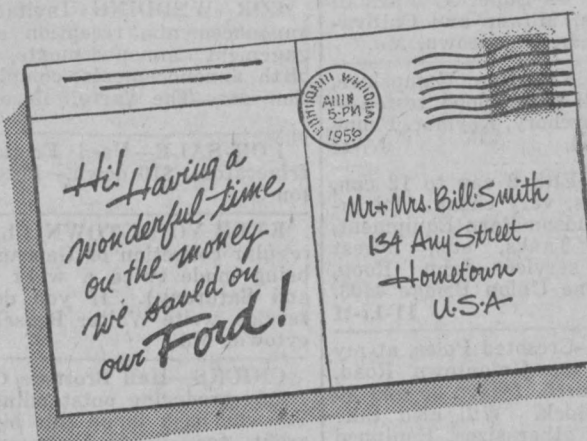 5-PM
1956
Hi! Having a
wonderful time
on the money
we saved on
our Ford!
Mr + Mrs. Bill Smith
134 Any Street
Hometown
U.S.A